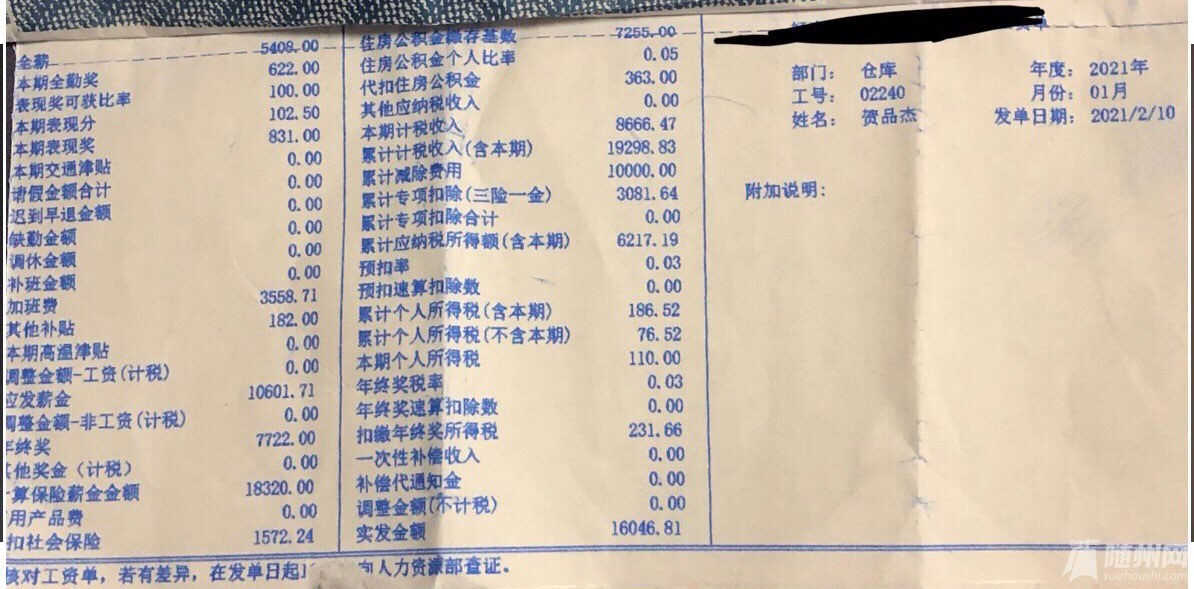 全薪 5408.00
本期全勤奖 622.00
表现奖可获比率 100.00
本期表现分 102.50
本期表现奖 831.00
本期交通津贴 0.00
请假金额合计 0.00
迟到早退金额 0.00
缺勤金额 0.00
调休金额 0.00
补班金额 0.00
加班费 3558.71
其他补贴 182.00
本期高温津贴 0.00
调整金额-工资(计税) 0.00
应发薪金 10601.71
调整金额-非工资(计税) 0.00
年终奖 7722.00
其他奖金（计税） 0.00
计算保险薪金金额 18320.00
用产品费 0.00
扣社会保险 1572.24
住房公积金缴存基数 7255.00
住房公积金个人比率 0.05
代扣住房公积金 363.00
其他应纳税收入 0.00
本期计税收入 8666.47
累计计税收入(含本期) 19298.83
累计减除费用 10000.00
累计专项扣除(三险一金) 3081.64
累计专项扣除合计 0.00
累计应纳税所得额(含本期) 6217.19
预扣率 0.03
预扣速算扣除数 0.00
累计个人所得税(含本期) 186.52
累计个人所得税(不含本期) 76.52
本期个人所得税 110.00
年终奖税率 0.03
年终奖速算扣除数 0.00
扣缴年终奖所得税 231.66
一次性补偿收入 0.00
补偿代通知金 0.00
调整金额(不计税) 0.00
实发金额 16046.81
部门: 仓库 年度: 2021年
工号: 02240 月份: 01月
姓名: 贺品杰 发单日期: 2021/2/10
附加说明:
核对工资单，若有差异，在发单日起1 向人力资源部查证。
随州网
suizhoushi.com